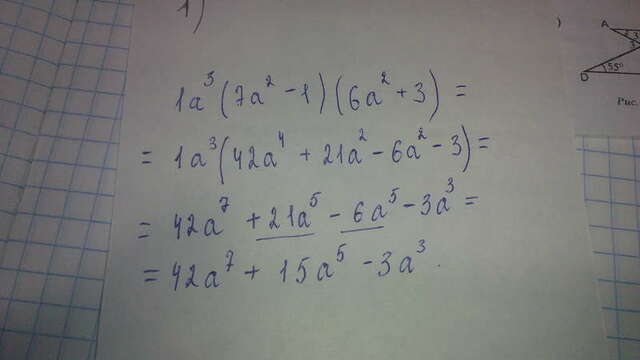 1)
1a³(7a² - 1)(6a² + 3) =
= 1a³(42a⁴ + 21a² - 6a² - 3) =
= 42a⁷ + 21a⁵ - 6a⁵ - 3a³ =
= 42a⁷ + 15a⁵ - 3a³.
)
A
3
D
55°
Рис.